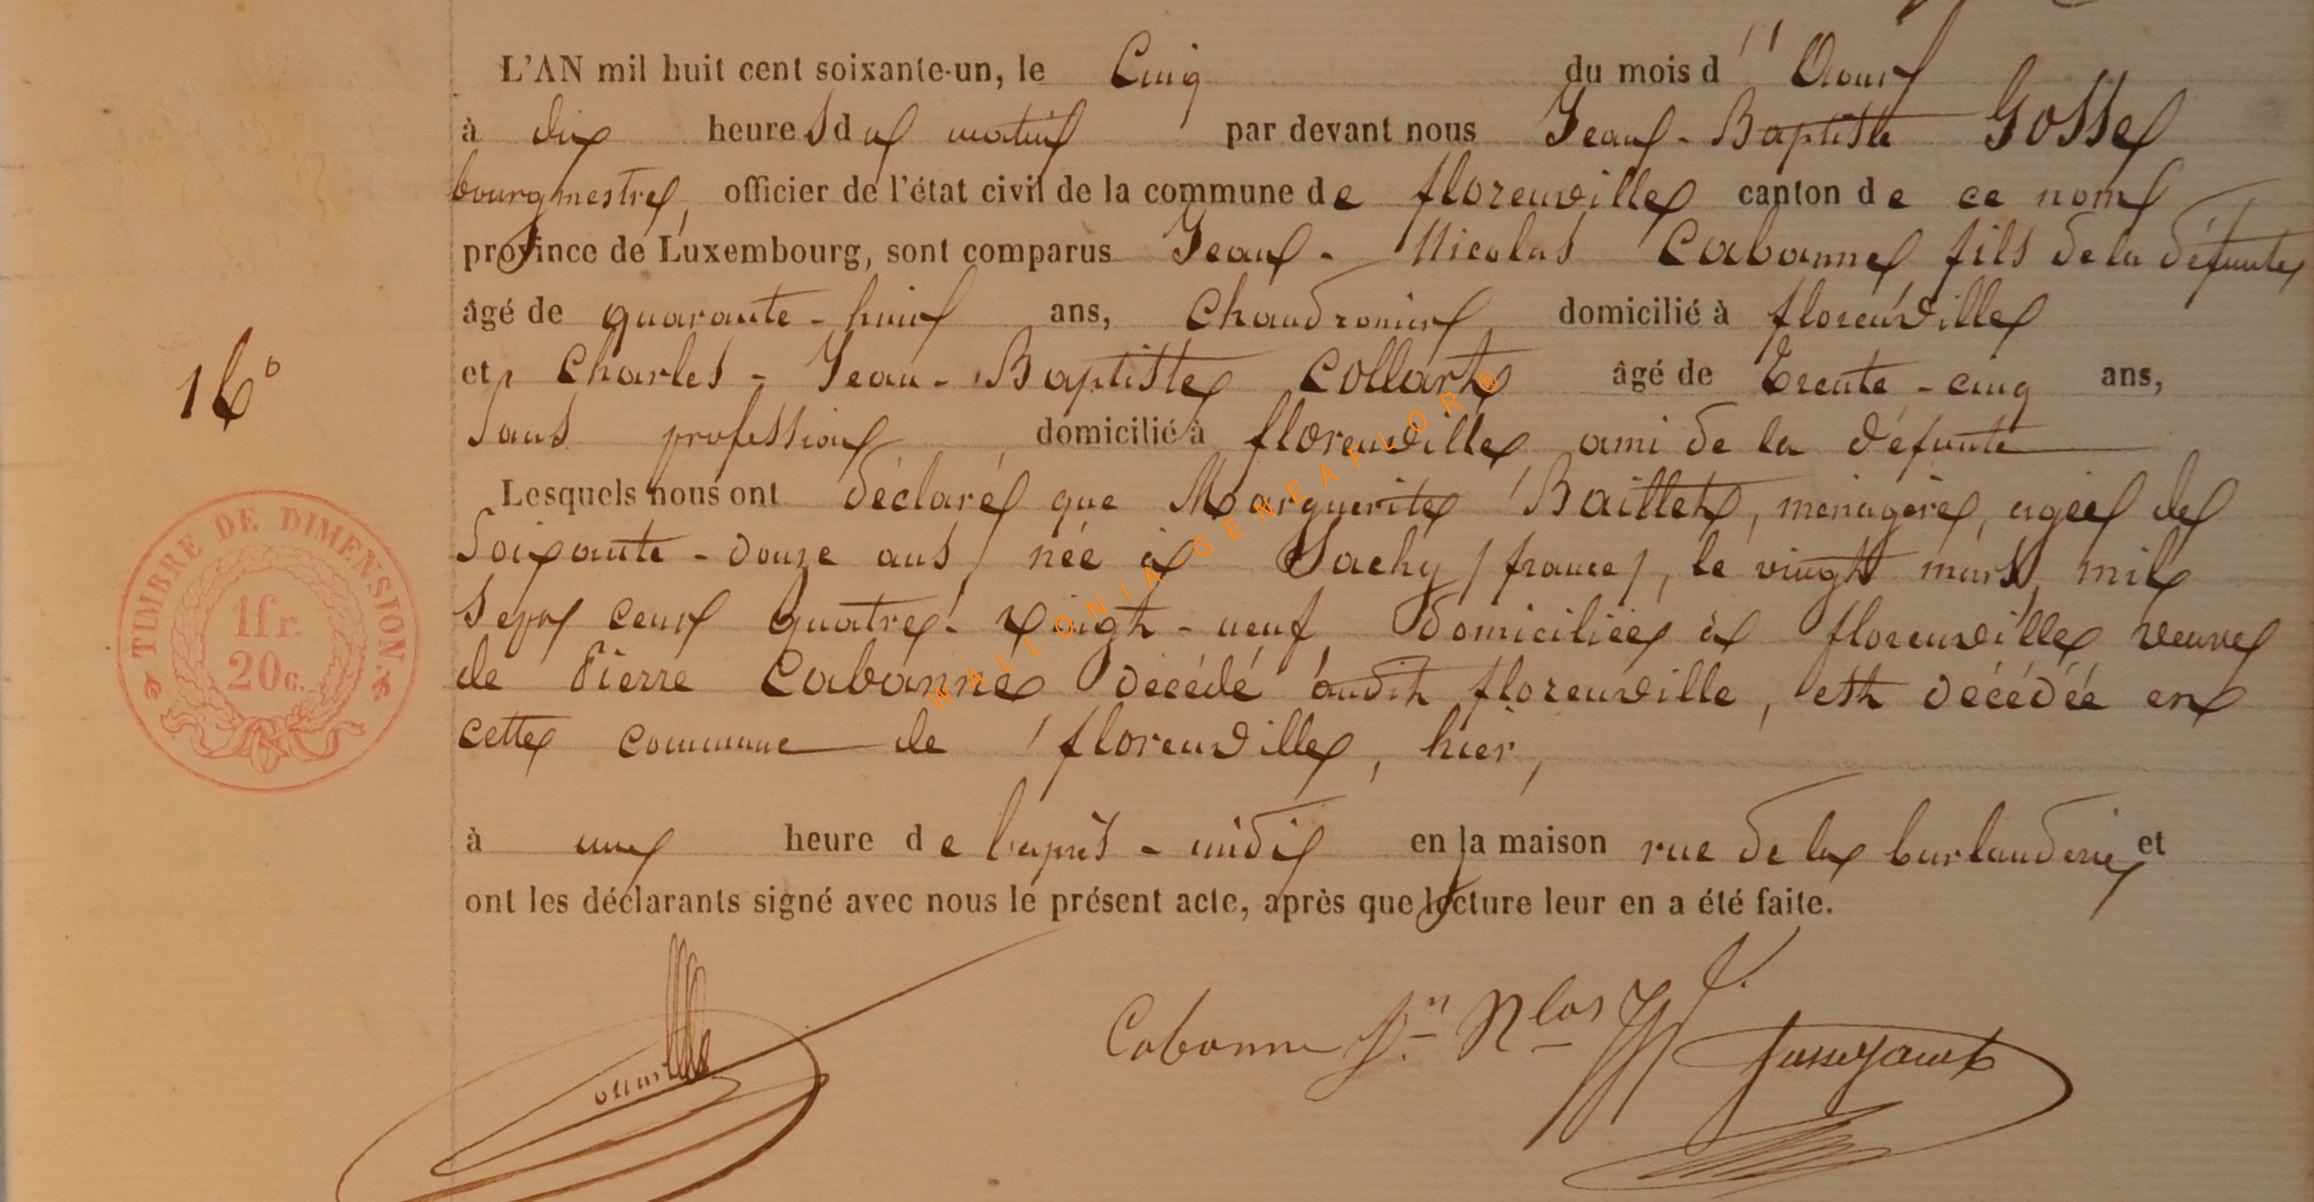 L'AN mil huit cent soixante-un, le Cinq du mois d'' Aout
à dix heures du matin par devant nous Jean-Baptiste Gosse
bourgmestre, officier de l'état civil de la commune de florenville canton de ce nom
province de Luxembourg, sont comparus Jean-Nicolas Cabanne fils de la défunte
âgé de quarante-huit ans, Chaudronnier domicilié à florenville
et Charles-Jean-Baptiste Collart âgé de Trente-cinq ans,
Sans profession, domicilié à florenville ami de la défunte
Lesquels nous ont déclaré que Marguerite Baillet, ménagère, agée de
Soixante-douze ans, née à Sachy /france/, le vingt mars mil
Sept cent quatre-vingt-neuf, domiciliée à florenville veuve
de Pierre Cabanne décédé audit florenville, est décédée en
cette commune de florenville, hier,
à une heure de l'après-midi en la maison rue de la burlanderie et
ont les déclarants signé avec nous le présent acte, après que lecture leur en a été faite.
16°
TIMBRE DE DIMENSION.
1fr.
20c.
WALLONIA GENEAFLOR®
Cabanne Jn Nlas